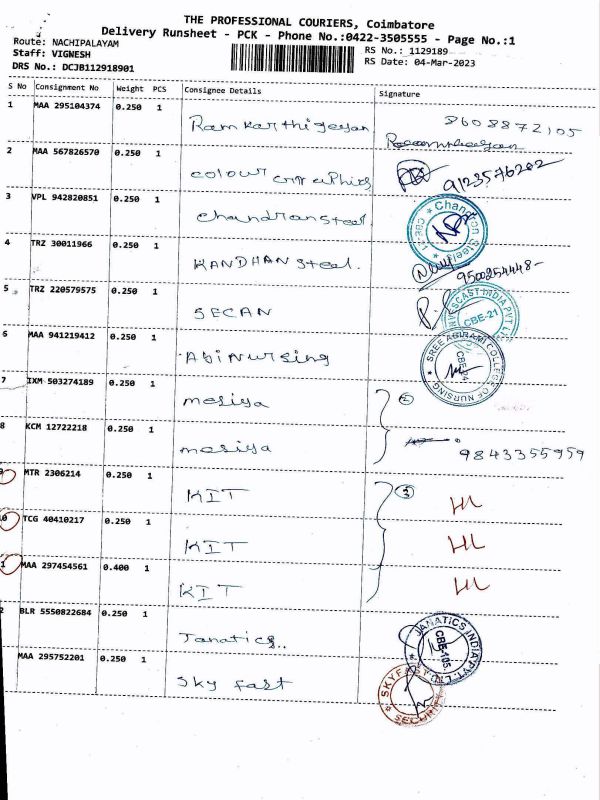 THE PROFESSIONAL COURIERS, Coimbatore
Delivery Runsheet - PCK - Phone No.:0422-3505555 - Page No.:1
Route: NACHIPALAYAM
Staff: VIGNESH
DRS No.: DCJB112918901
RS No.: 1129189
RS Date: 04-Mar-2023
S No Consignment No Weight PCS Consignee Details Signature
1 MAA 295104374 0.250 1 Ramkarthigeyan 8608872105
2 MAA 567826570 0.250 1 colour 9123576202
3 VPL 942820851 0.250 1 chandran steel.
★ Chandran Steels
4 TRZ 30011966 0.250 1 KANDHAN steel. 9500254448-
5 TRZ 220579575 0.250 1 SECAN
CAST INDIA PVT LTD
CBE-21
6 MAA 941219412 0.250 1 Abi Nursing
★ SREE ABIRAMI COLLEGE OF NURSING
7 IXM 503274189 0.250 1 mesiya 2
8 KCM 12722218 0.250 1 mesiya 9843355959
9 MTR 2306214 0.250 1 KIT 3 HL
0 TCG 40410217 0.250 1 KIT HL
1 MAA 297454561 0.400 1 KIT HL
2 BLR 5550822684 0.250 1 Janatics..
★ JANATICS INDIA PVT. LTD
CBE-105
MAA 295752201 0.250 1 Sky fast
SKYFAST
★ SECURITY